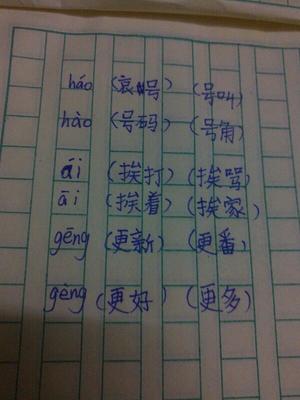 háo (哀号) (号叫)
hào (号码) (号角)
ái (挨打) (挨骂)
āi (挨着) (挨家)
gēng (更新) (更番)
gèng (更好) (更多)